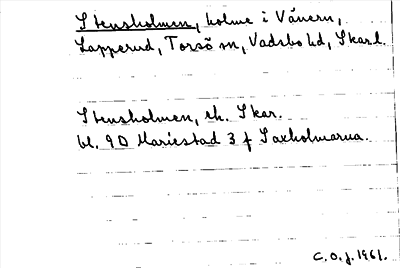 Stensholmen, holme i Vänern,
Lapperud, Torsö sn, Vadsbo hd, Skarl.
Stensholmen, ek. Skar.
bl. 9D Mariestad 3 f Saxholmarna.
C.O.J. 1961.